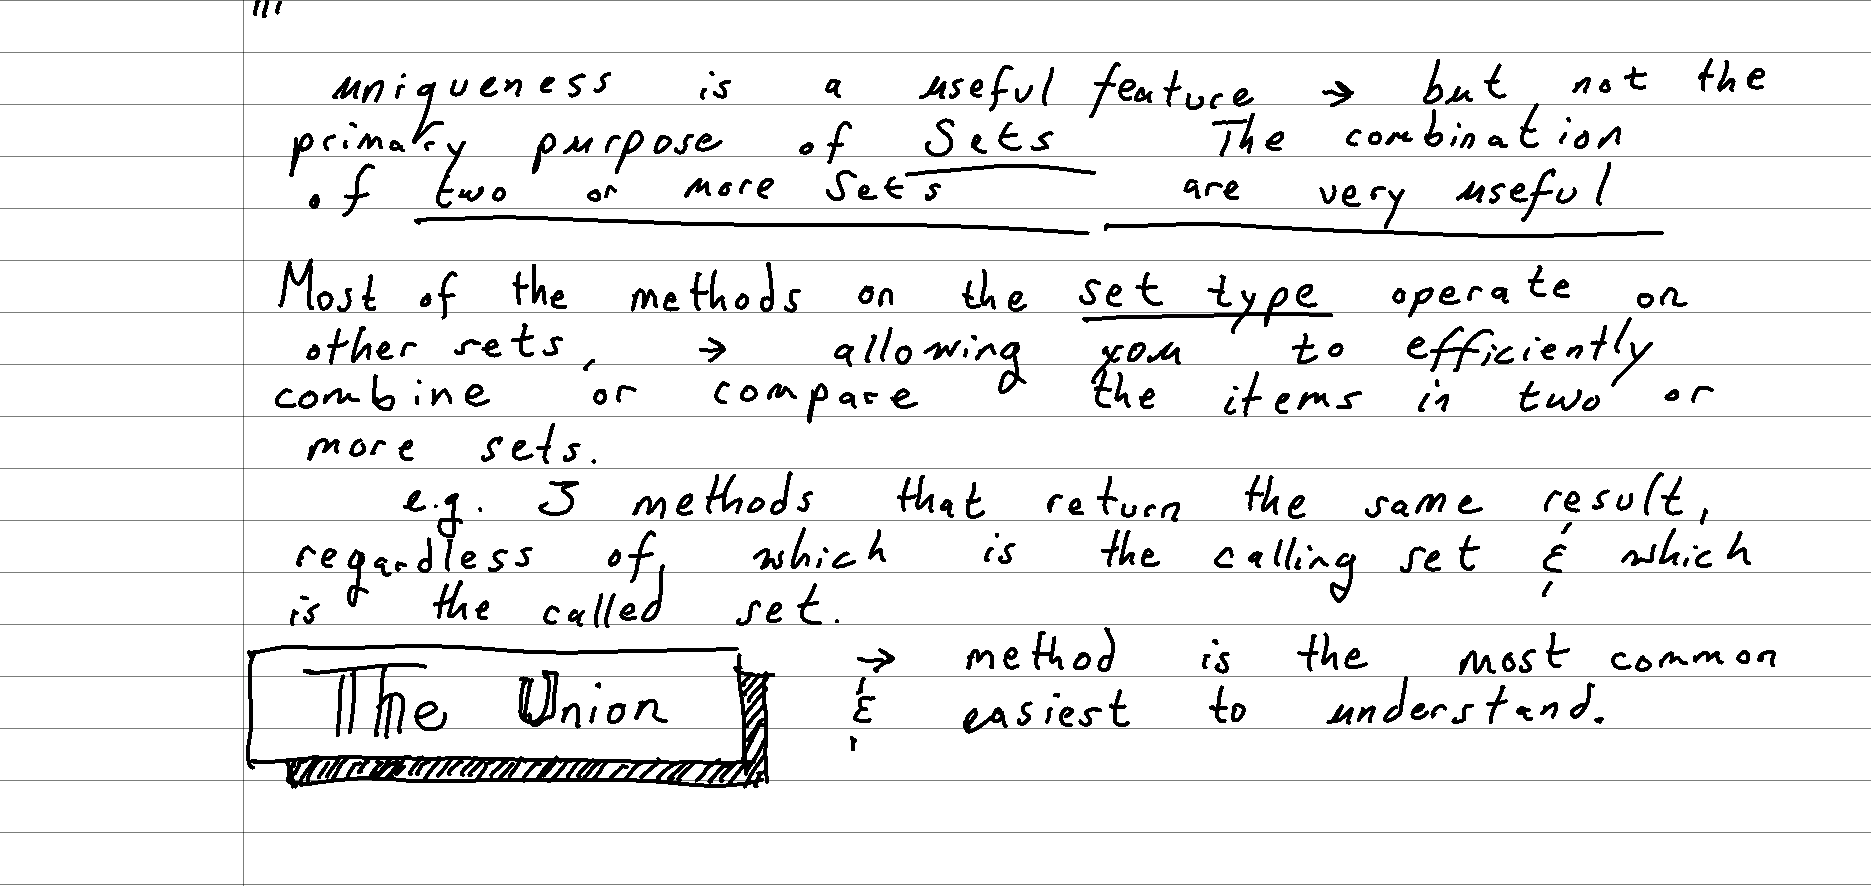 uniqueness is a useful feature → but not the
primary purpose of Sets The combination
of two or more Sets are very useful
Most of the methods on the set type operate on
other sets, → allowing you to efficiently
combine or compare the items in two or
more sets.
e.g. 3 methods that return the same result,
regardless of which is the calling set & which
is the called set.
The Union → method is the most common
& easiest to understand.